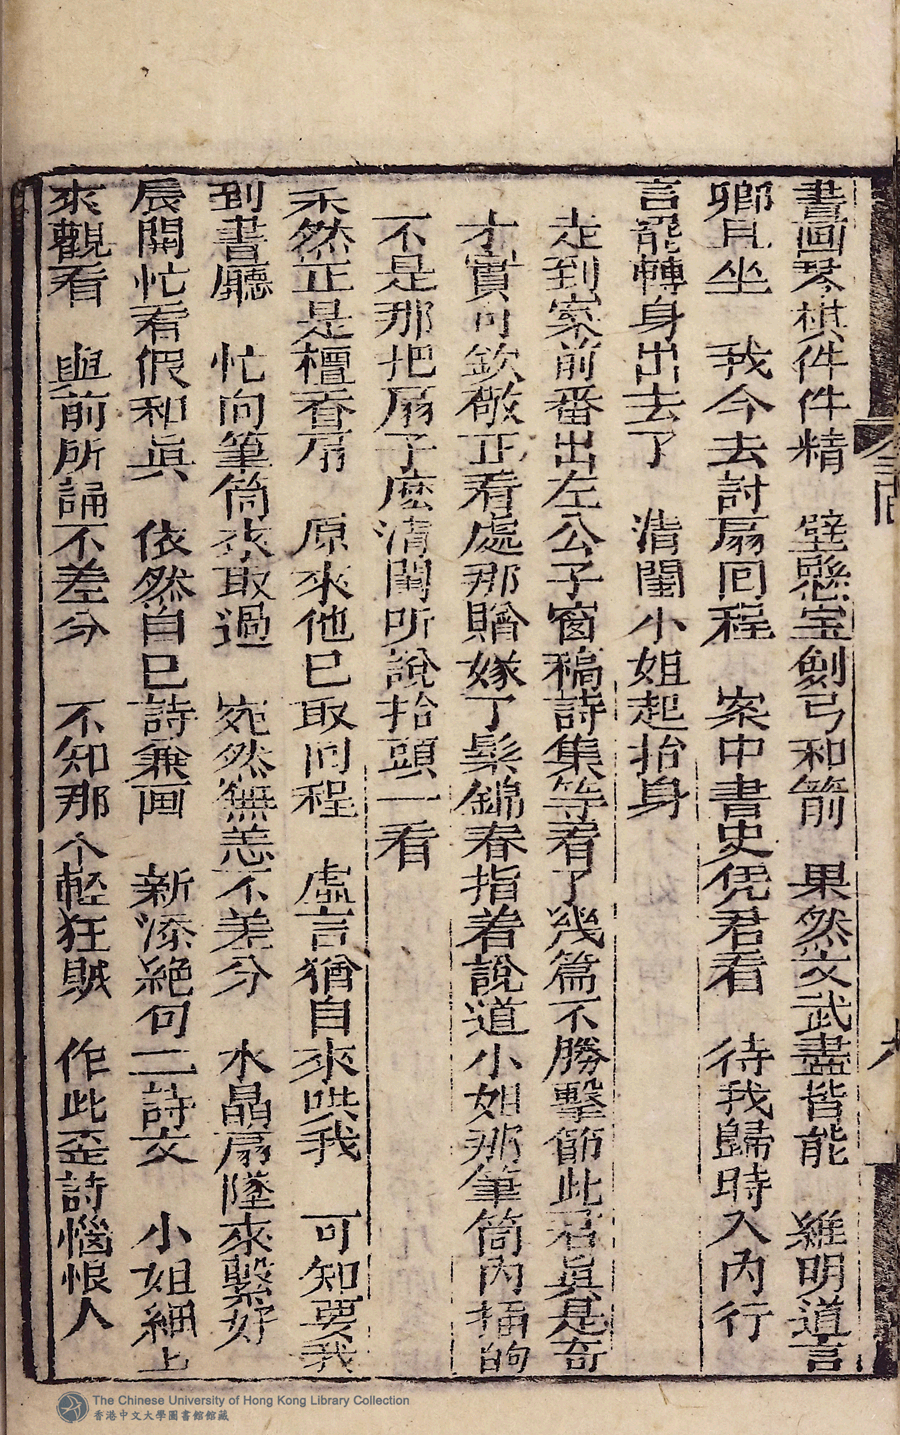 書画琴棋件件精　壁懸宝劍弓和箭　果然文武盡皆能　維明道言
卿且坐　我今去討扇回程　案中書史凭君看　待我歸時入內行
言罷轉身出去了　清閨小姐起抬身
走到案前番出左公子窗稿詩集等看了幾篇不勝擊節此君真是奇
才實可欽敬正看處那贈嫁了髮錦春指着說道小姐那筆筒內插的
不是那把扇子麽清閨听說抬頭一看
禾然正是檀香扇　原來他已取回程　虛言猶自來哄我　可知要我
到書廳　忙向筆筒來取過　宛然無恙不差分　水晶扇墜來繫好
辰開忙看假和真　依然自已詩兼画　新添絕句二詩文　小姐細上
來觀看　與前所誦不差分　不知那个輕狂賊　作此歪詩惱恨人
The Chinese University of Hong Kong Library Collection
香港中文大學圖書館館藏